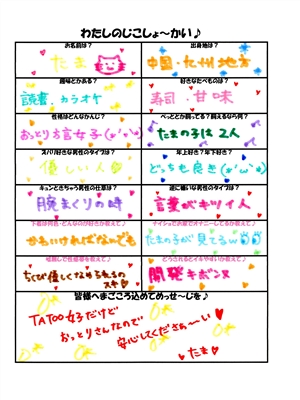 わたしのじこしょ〜かい♪
お名前は？
出身地は？
たま
中国・九州地方
趣味とかある？
好きなたべものは？
読書・カラオケ
寿司・甘味
性格はどんなかんじ？
ぺっととか飼ってる？飼うなら何？
おっとり方言女子
たまの子は2人
ズバリ好きな男性のタイプは？
年上好き？年下好き？
優しい人
どっちも良き
キュンとさちゃう男性の仕草は？
逆に嫌いな男性のタイプは？
腕まくりの時
言葉がキツイ人
かわいければなんでも
たまの子が見てるw
ちくび優しくなめられるの
スキ
開発キボンヌ
皆様へまごころ込めてめっせ〜じを♪
TATOO女子だけど
おっとりさんなので
安心してくださぁ〜い
たま